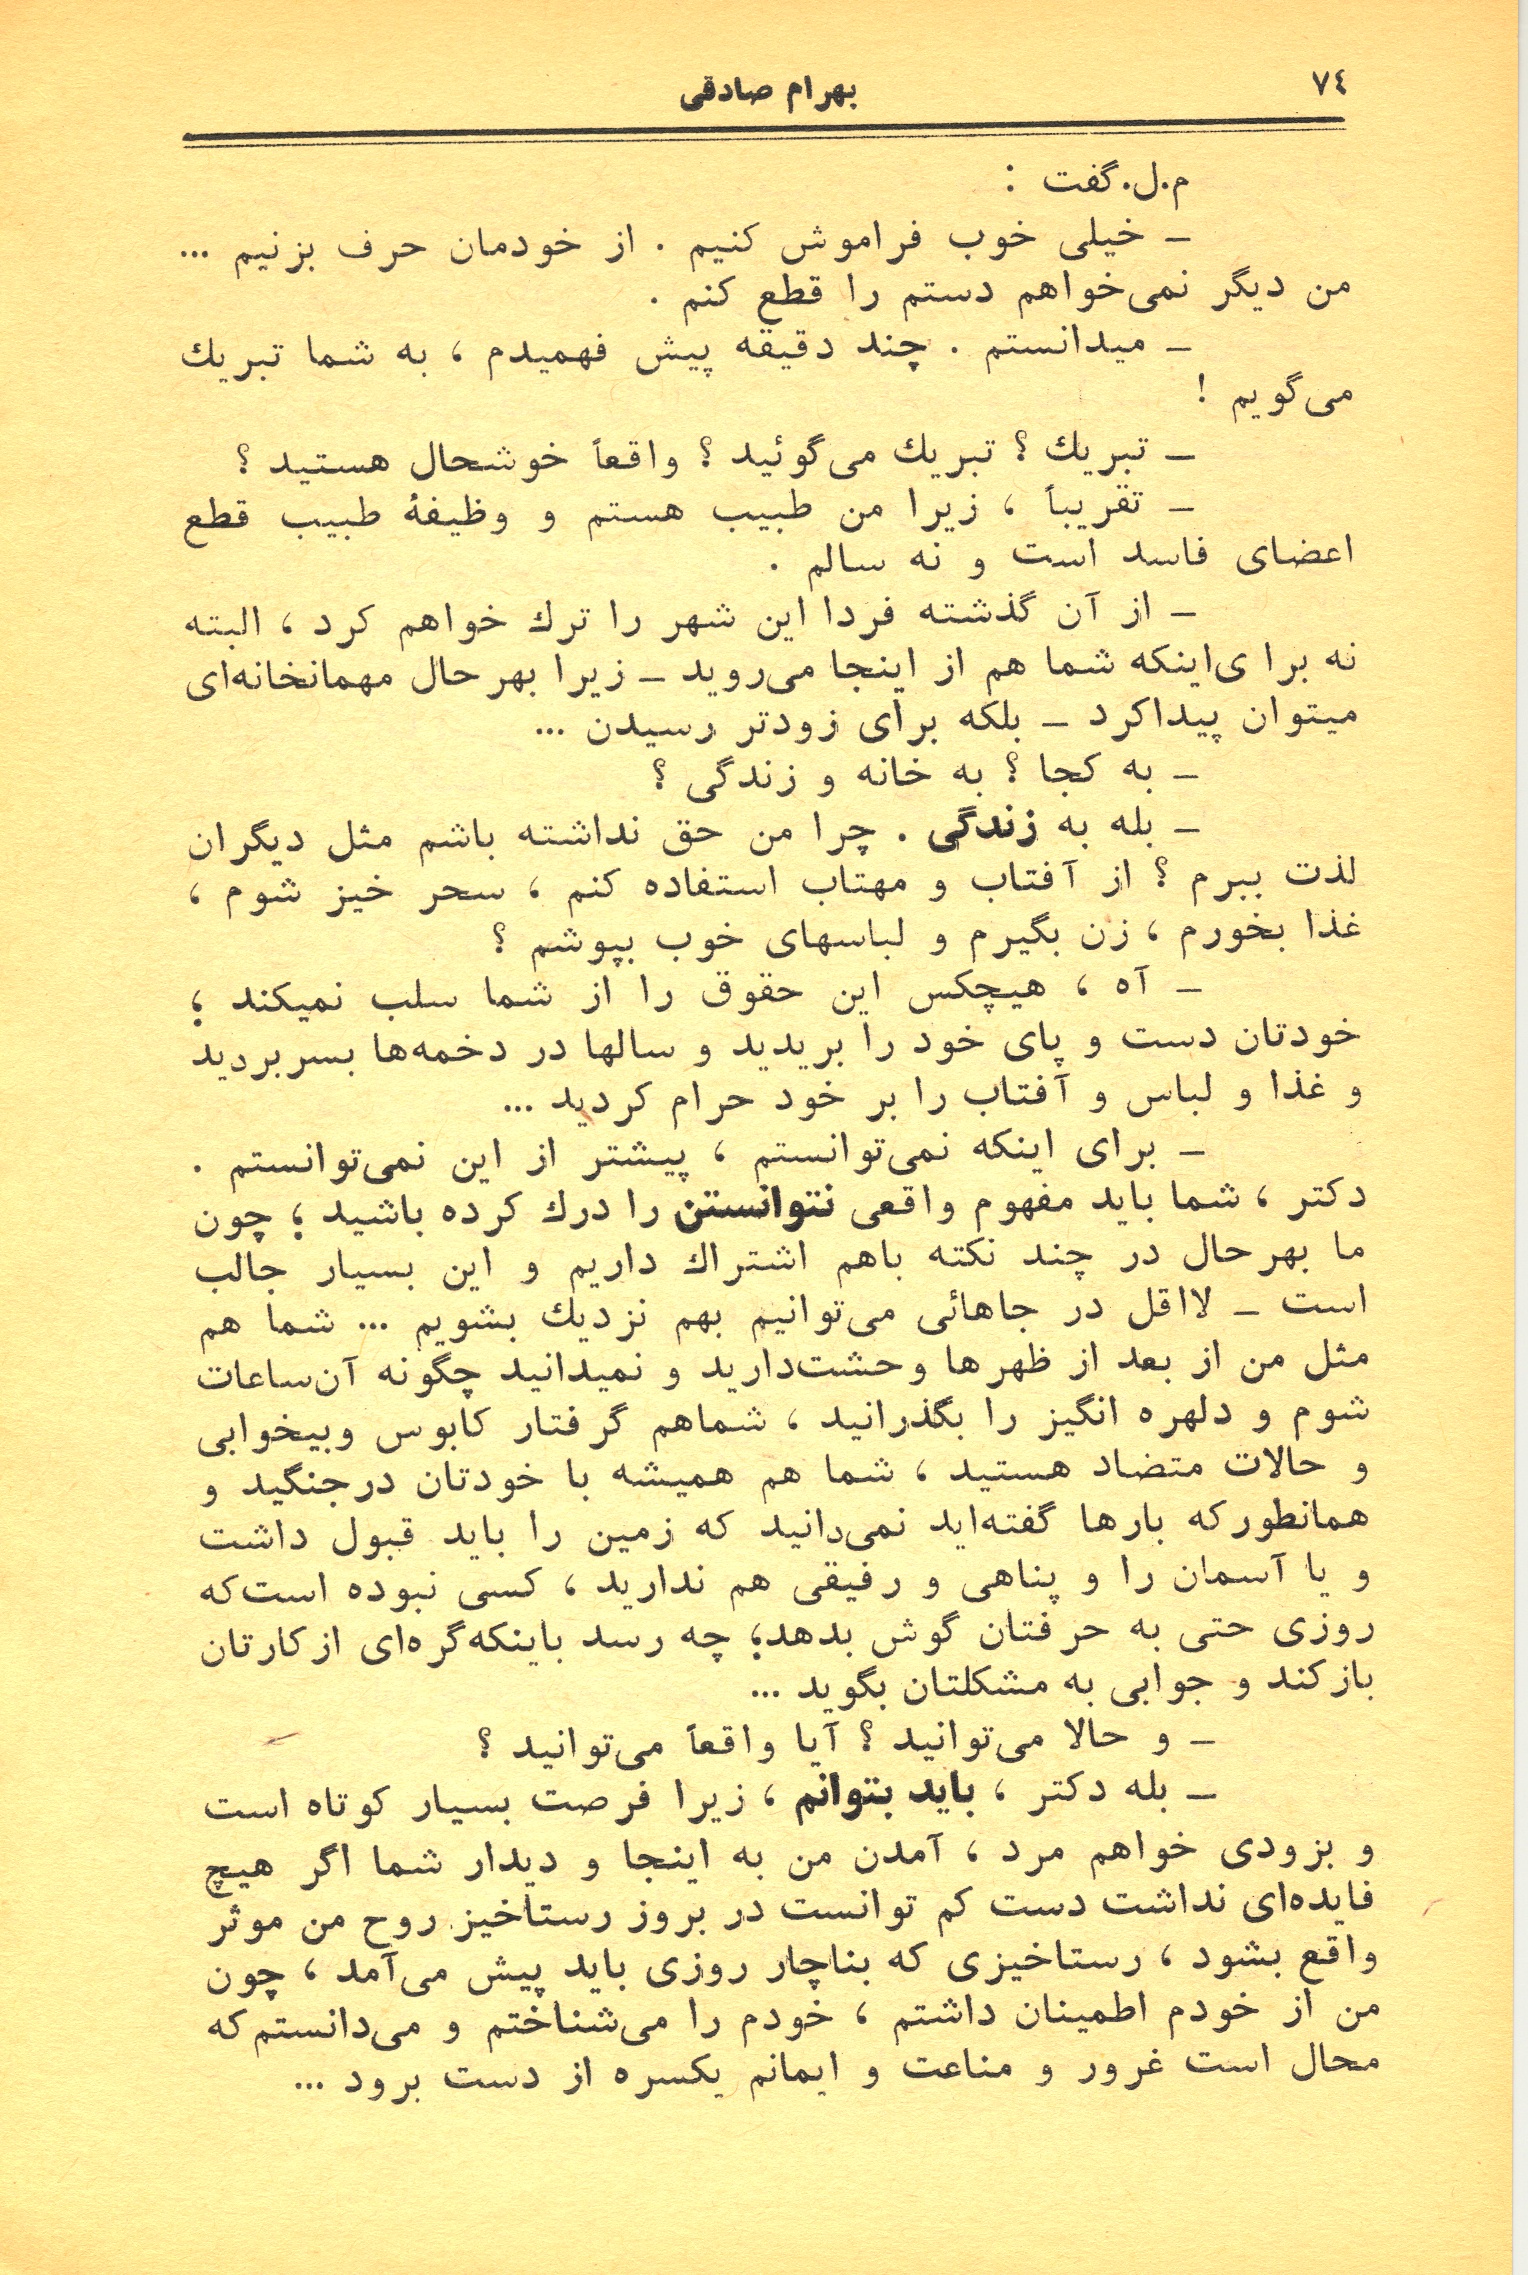 ٧٤
بهرام صادقی
م.ل.گفت :
ـ خیلی خوب فراموش کنیم . از خودمان حرف بزنیم ...
من دیگر نمی‌خواهم دستم را قطع کنم .
ـ میدانستم . چند دقیقه پیش فهمیدم ، به شما تبریك
می‌گویم !
ـ تبریك ؟ تبریك می‌گوئید ؟ واقعاً خوشحال هستید ؟
ـ تقریباً ، زیرا من طبیب هستم و وظیفهٔ طبیب قطع
اعضای فاسد است و نه سالم .
ـ از آن گذشته فردا این شهر را ترك خواهم کرد ، البته
نه برا ی‌اینکه شما هم از اینجا می‌روید ـ زیرا بهرحال مهمانخانه‌ای
میتوان پیداکرد ـ بلکه برای زودتر رسیدن ...
ـ به کجا ؟ به خانه و زندگی ؟
ـ بله به زندگی . چرا من حق نداشته باشم مثل دیگران
لذت ببرم ؟ از آفتاب و مهتاب استفاده کنم ، سحر خیز شوم ،
غذا بخورم ، زن بگیرم و لباسهای خوب بپوشم ؟
ـ آه ، هیچکس این حقوق را از شما سلب نمیکند ؛
خودتان دست و پای خود را بریدید و سالها در دخمه‌ها بسربردید
و غذا و لباس و آفتاب را بر خود حرام کردید ...
ـ برای اینکه نمی‌توانستم ، پیشتر از این نمی‌توانستم .
دکتر ، شما باید مفهوم واقعی نتوانستن را درك کرده باشید ؛ چون
ما بهرحال در چند نکته باهم اشتراك داریم و این بسیار جالب
است ـ لااقل در جاهائی می‌توانیم بهم نزدیك بشویم ... شما هم
مثل من از بعد از ظهرها وحشت‌دارید و نمیدانید چگونه آن‌ساعات
شوم و دلهره انگیز را بگذرانید ، شماهم گرفتار کابوس وبیخوابی
و حالات متضاد هستید ، شما هم همیشه با خودتان درجنگید و
همانطورکه بارها گفته‌اید نمی‌دانید که زمین را باید قبول داشت
و یا آسمان را و پناهی و رفیقی هم ندارید ، کسی نبوده است‌که
روزی حتی به حرفتان گوش بدهد؛ چه رسد باینکه‌گره‌ای ازکارتان
بازکند و جوابی به مشکلتان بگوید ...
ـ و حالا می‌توانید ؟ آیا واقعاً می‌توانید ؟
ـ بله دکتر ، باید بتوانم ، زیرا فرصت بسیار کوتاه است
و بزودی خواهم مرد ، آمدن من به اینجا و دیدار شما اگر هیچ
فایده‌ای نداشت دست کم توانست در بروز رستاخیز روح من موثر
واقع بشود ، رستاخیزی که بناچار روزی باید پیش می‌آمد ، چون
من از خودم اطمینان داشتم ، خودم را می‌شناختم و می‌دانستم‌که
محال است غرور و مناعت و ایمانم یکسره از دست برود ...